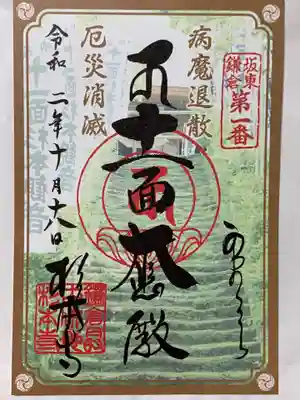 坂東
鎌倉
第一番
病魔退散
厄災消滅
十一面大悲殿
令和二年十月十八日
杉本寺